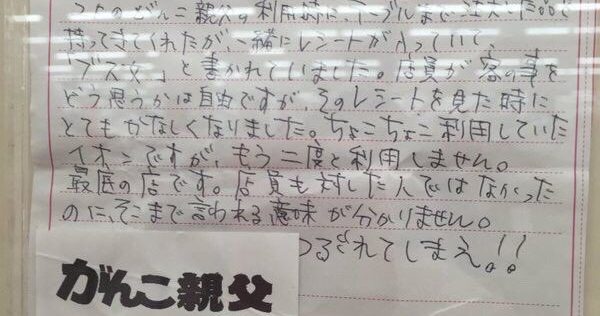 うたのがんこ親父の利用時に、テーブルまで注文した品を
持ってきてくれたが、一緒にレシートが入っていて、
「ブス女」と書かれていました。店員が客の事を
どう思うかは自由ですが、そのレシートを見た時に
とてもかなしくなりました。ちょこちょこ利用していた
イオンですが、もう二度と利用しません。
最底の店です。店員も対した人ではなかった
のに、そこまで言われる意味が分かりません。
つぶれてしまえ!!
がんこ親父